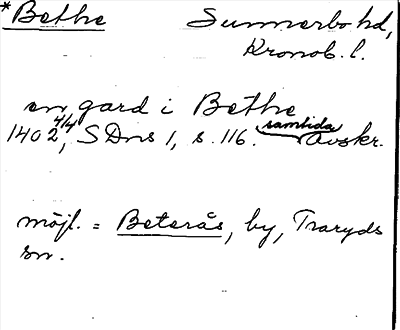 *Bethe Sunnerbo hd,
Kronob. l.
en gard i Bethe
1402 4/4, SDns 1, s. 116. samtida Avskr.
möjl. = Beterås, by, Traryds
sn.